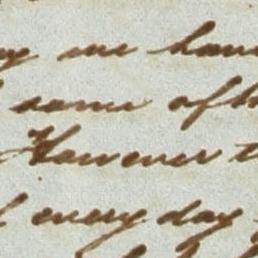 one have
some of the
However
every day